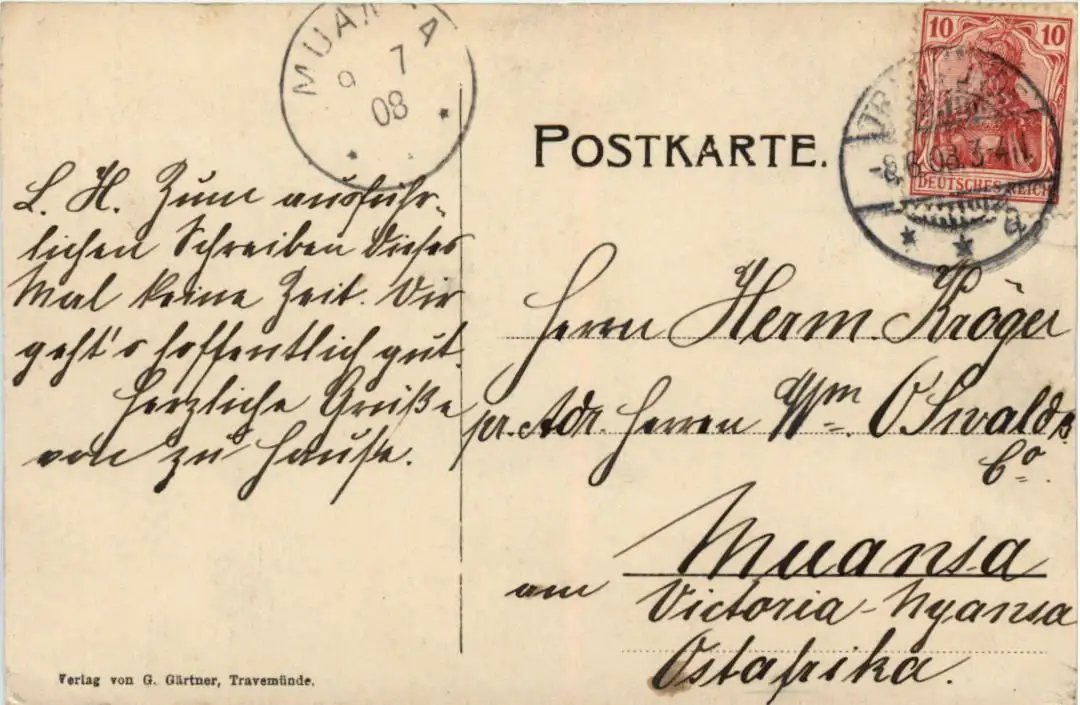 MUANSA
9 7
08
10 10
DEUTSCHES REICH
-8.6.08.3-4N.
a
POSTKARTE.
L. H. Zum ausführ-
lichen Schreiben dieses
Mal keine Zeit. Dir
geht's hoffentlich gut.
Herzliche Grüße
von zu Hause.
Herrn Herm. Kröger
pr. Adr. Herren Wm. O'Swald &
Co.
Muansa
am Victoria-Nyansa
Ostafrika.
Verlag von G. Gärtner, Travemünde.